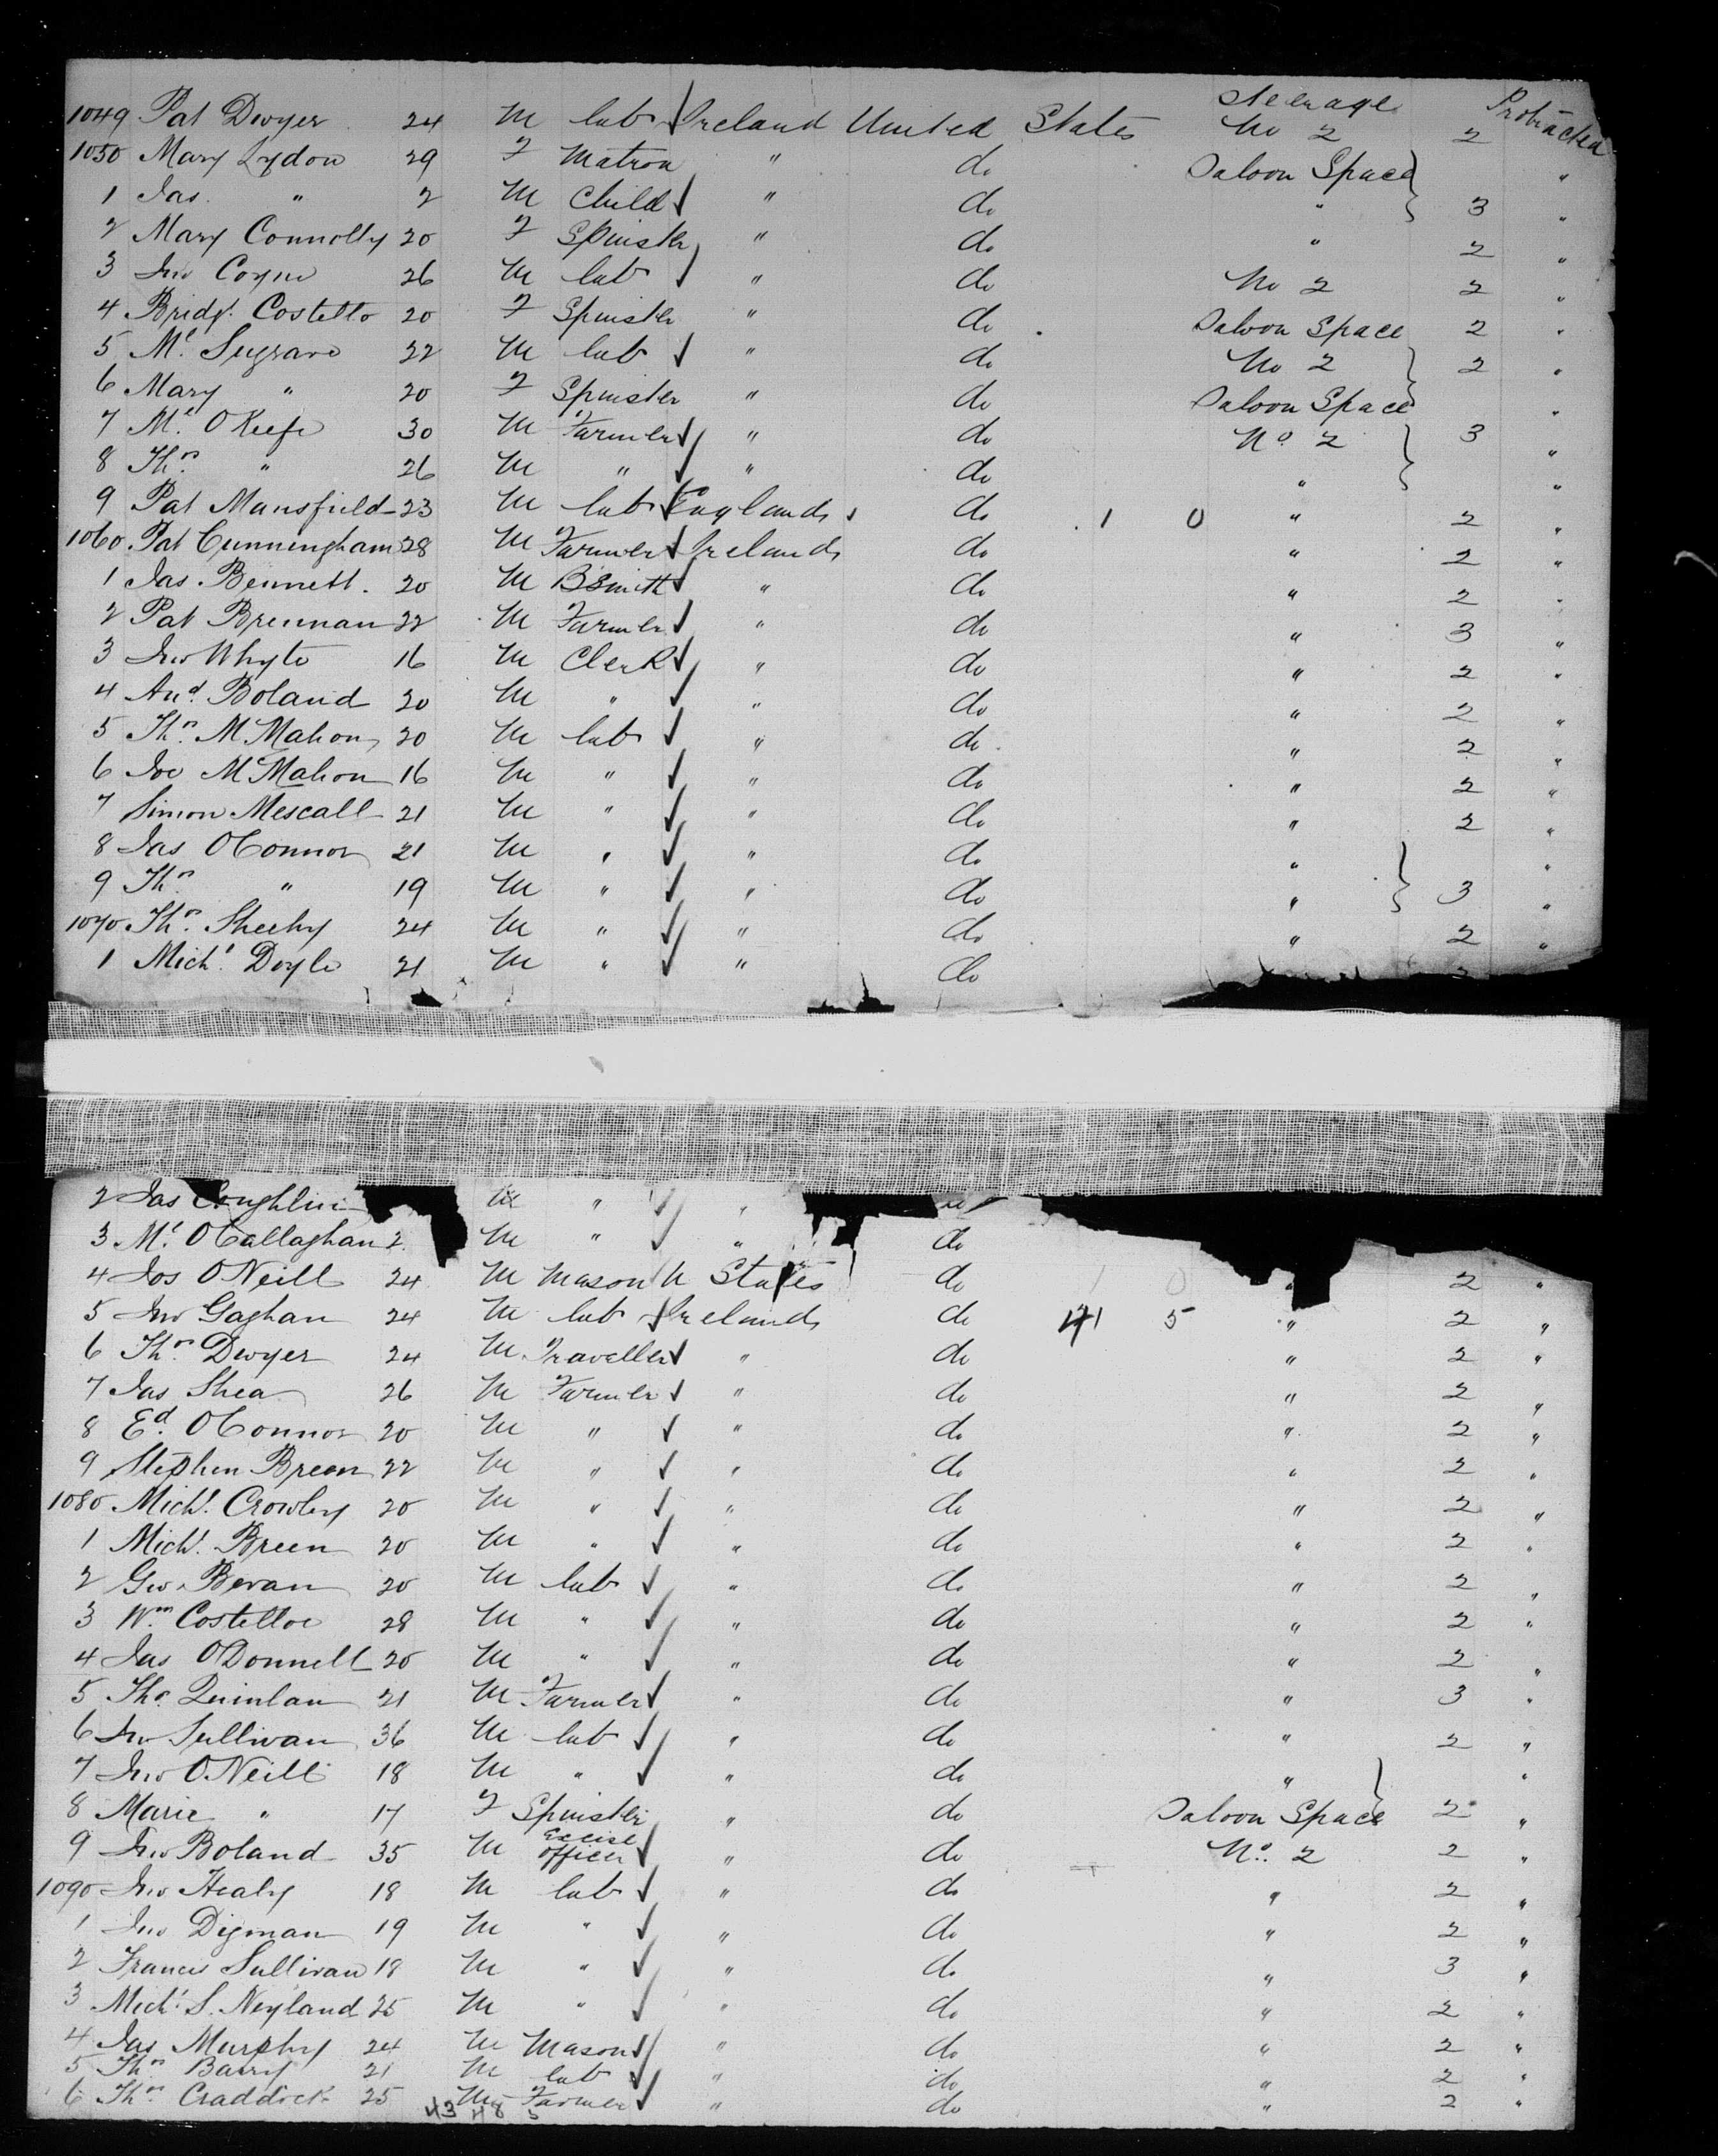 Steerage Protracted
1049 Pat Dwyer 24 M lab Ireland United States No 2 2
1050 Mary Lydon 29 F Matron " do Saloon Space "
1 Jas. " 2 M Child " do " 3 "
2 Mary Connolly 20 F Spinster " do " 2 "
3 Jno Coyne 26 M lab " do No 2 2 "
4 Bridgt. Costello 20 F Spinster " do Saloon Space 2 "
5 Ml Sugrave 22 M lab " do No 2 2 "
6 Mary " 20 F Spinster " do Saloon Space "
7 Ml. O Keefe 30 M Farmer " do No 2 3 "
8 Ths. " 26 M " " do " "
9 Pat Mansfield 23 M lab England do 1 0 " 2 "
1060 Pat Cunningham 28 M Farmer Ireland do " 2 "
1 Jas. Bennett. 20 M BSmith " do " 2 "
2 Pat Brennan 22 M Farmer " do " 3 "
3 Jno Whyte 16 M Clerk " do " 2 "
4 And. Boland 20 M " " do " 2 "
5 Ths. McMahon 20 M lab " do " 2 "
6 Joe McMahon 16 M " " do " 2 "
7 Simon Mescall 21 M " " do " 2 "
8 Jas OConnor 21 M " " do " "
9 Ths. " 19 M " " do " 3 "
1070 Ths. Sheehy 24 M " " do " 2 "
1 Michl. Doyle 21 M " " do
2 Jas Coughlin M " "
3 Ml. OCallaghan 2 M " " do
4 Jos ONeill 24 M Mason U States do 1 0 " 2 "
5 Jno Gaghan 24 M lab Ireland do 41 5 " 2 "
6 Ths. Dwyer 24 M Traveller " do " 2 "
7 Jas Shea 26 M Farmer " do " 2 "
8 Ed. OConnor 20 M " " do " 2 "
9 Stephen Breen 22 M " " do " 2 "
1080 Michl. Crowley 20 M " " do " 2 "
1 Michl. Breen 20 M " " do " 2 "
2 Geo. Bevan 20 M lab " do " 2 "
3 Wm Costelloe 28 M " " do " 2 "
4 Jas ODonnell 20 M " " do " 2 "
5 Ths. Quinlan 21 M Farmer " do " 3 "
6 Jno Sullivan 36 M lab " do " 2 "
7 Jno ONeill 18 M " " do " "
8 Marie " 17 F Spinster " do Saloon Space 2 "
9 Jno Boland 35 M Excise Officer " do No. 2 2 "
1090 Jno Healy 18 M lab " do " 2 "
1 Jno Digman 19 M " " do " 2 "
2 Francis Sullivan 18 M " " do " 3 "
3 Michl. S. Neyland 25 M " " do " 2 "
4 Jas Murphy 24 M Mason " do " 2 "
5 Ths. Barry 21 M lab " do " 2 "
6 Ths. Craddock 25 M Farmer " do " 2 "
43 48 5